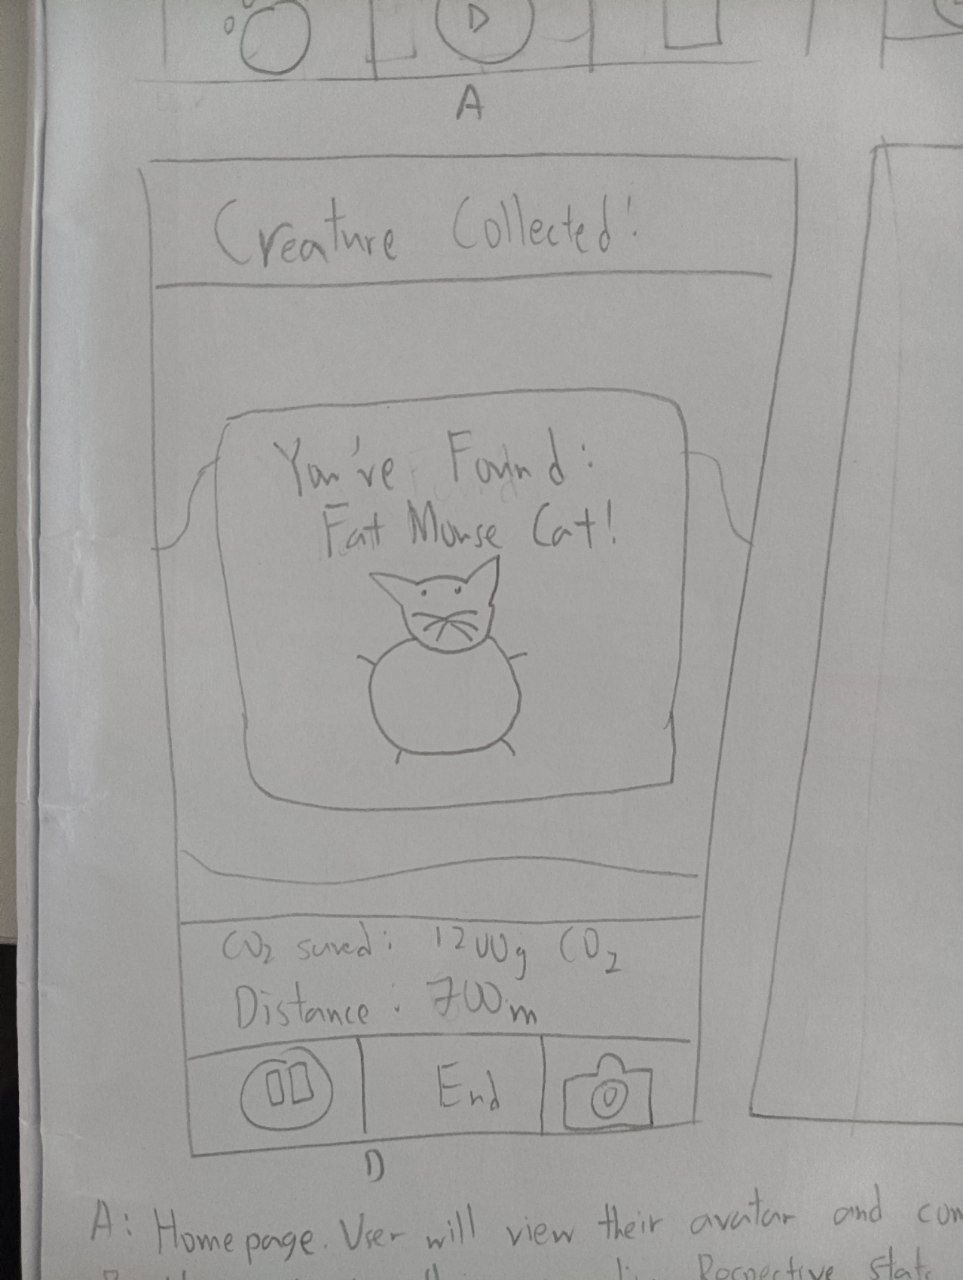 A
Creature Collected!
You've Found:
Fat Mouse Cat!
CO2 saved: 1200g CO2
Distance: 700m
End
D
A: Home page. User will view their avatar and
Respective stat